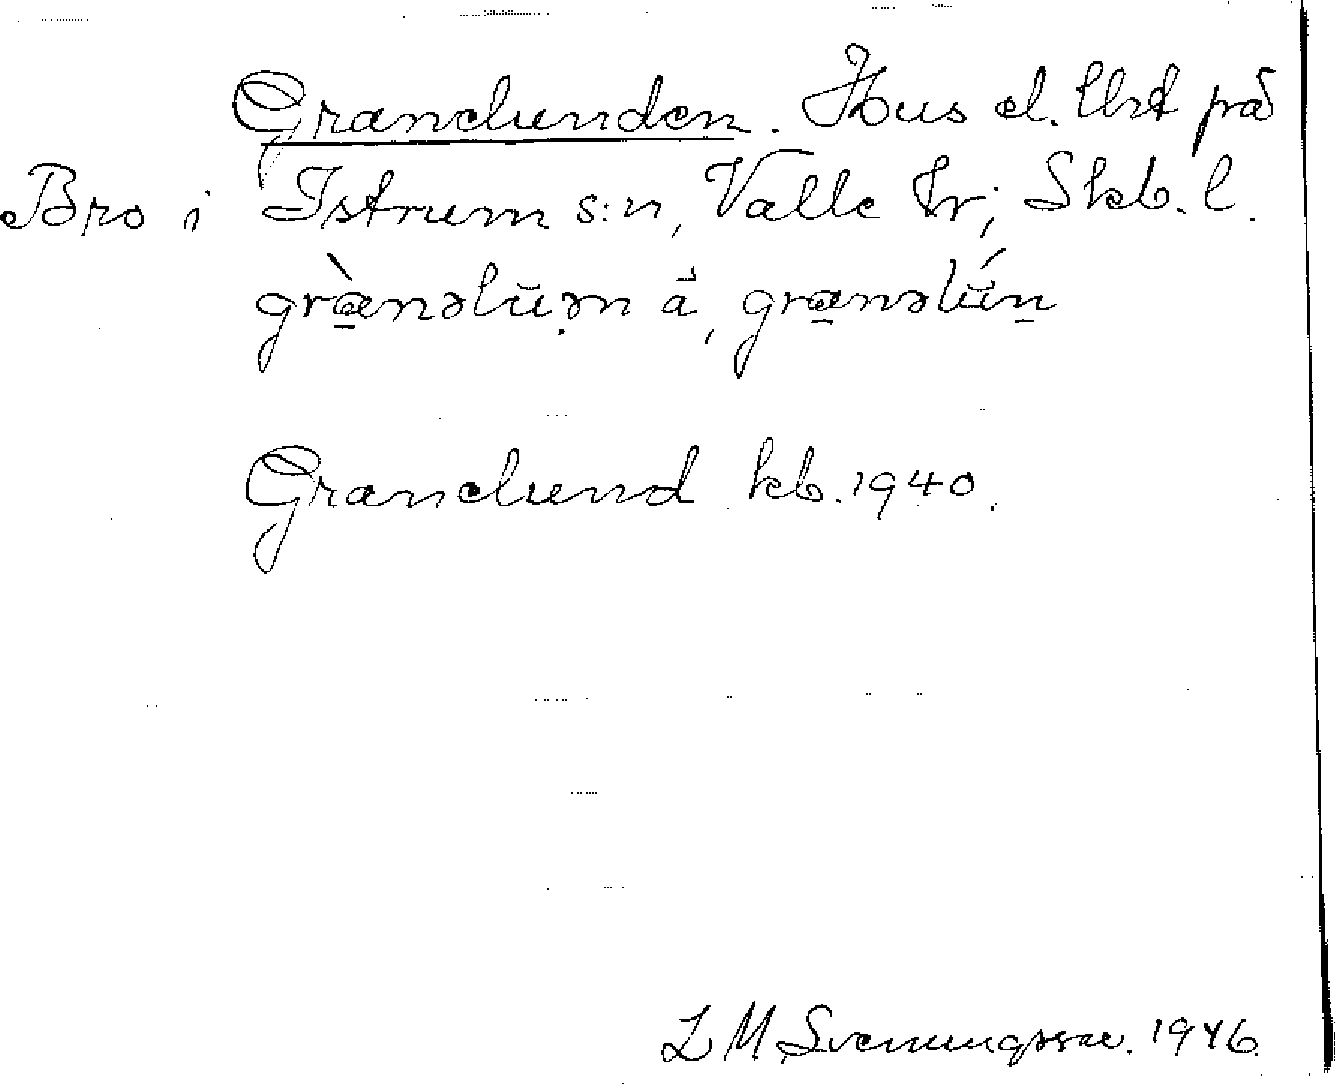 Granelunden. Hus el. lht på
Bro i Istrum s:n, Valle hr; Skb. l.
græ̀nəlŭṇən å̄, grænəlŭ́n
Granelund kb. 1940.
L M Svenungsson. 1946.